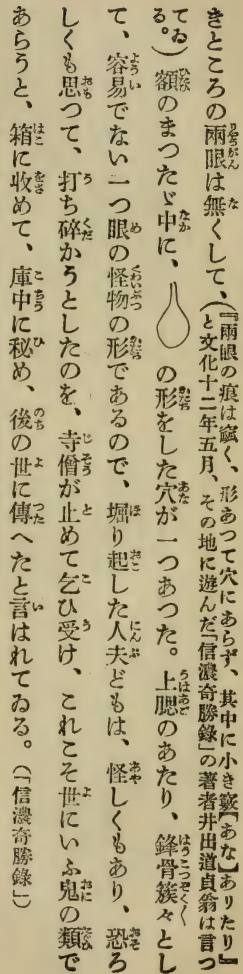 きところの兩眼は無くして、(『兩眼の痕は窳く、形あつて穴にあらず、其中に小き竅【あな】ありたり』と文化十二年五月、その地に遊んだ「信濃奇勝錄」の著者井出道貞翁は言つてゐる。)額のまつたゞ中に、
の形をした穴が一つあつた。上腮のあたり、鋒骨簇々とし
て、容易でない一つ眼の怪物の形であるので、堀り起した人夫どもは、怪しくもあり、恐ろ
しくも思つて、打ち碎かうとしたのを、寺僧が止めて乞ひ受け、これこそ世にいふ鬼の類で
あらうと、箱に收めて、庫中に秘め、後の世に傳へたと言はれてゐる。(「信濃奇勝錄」)